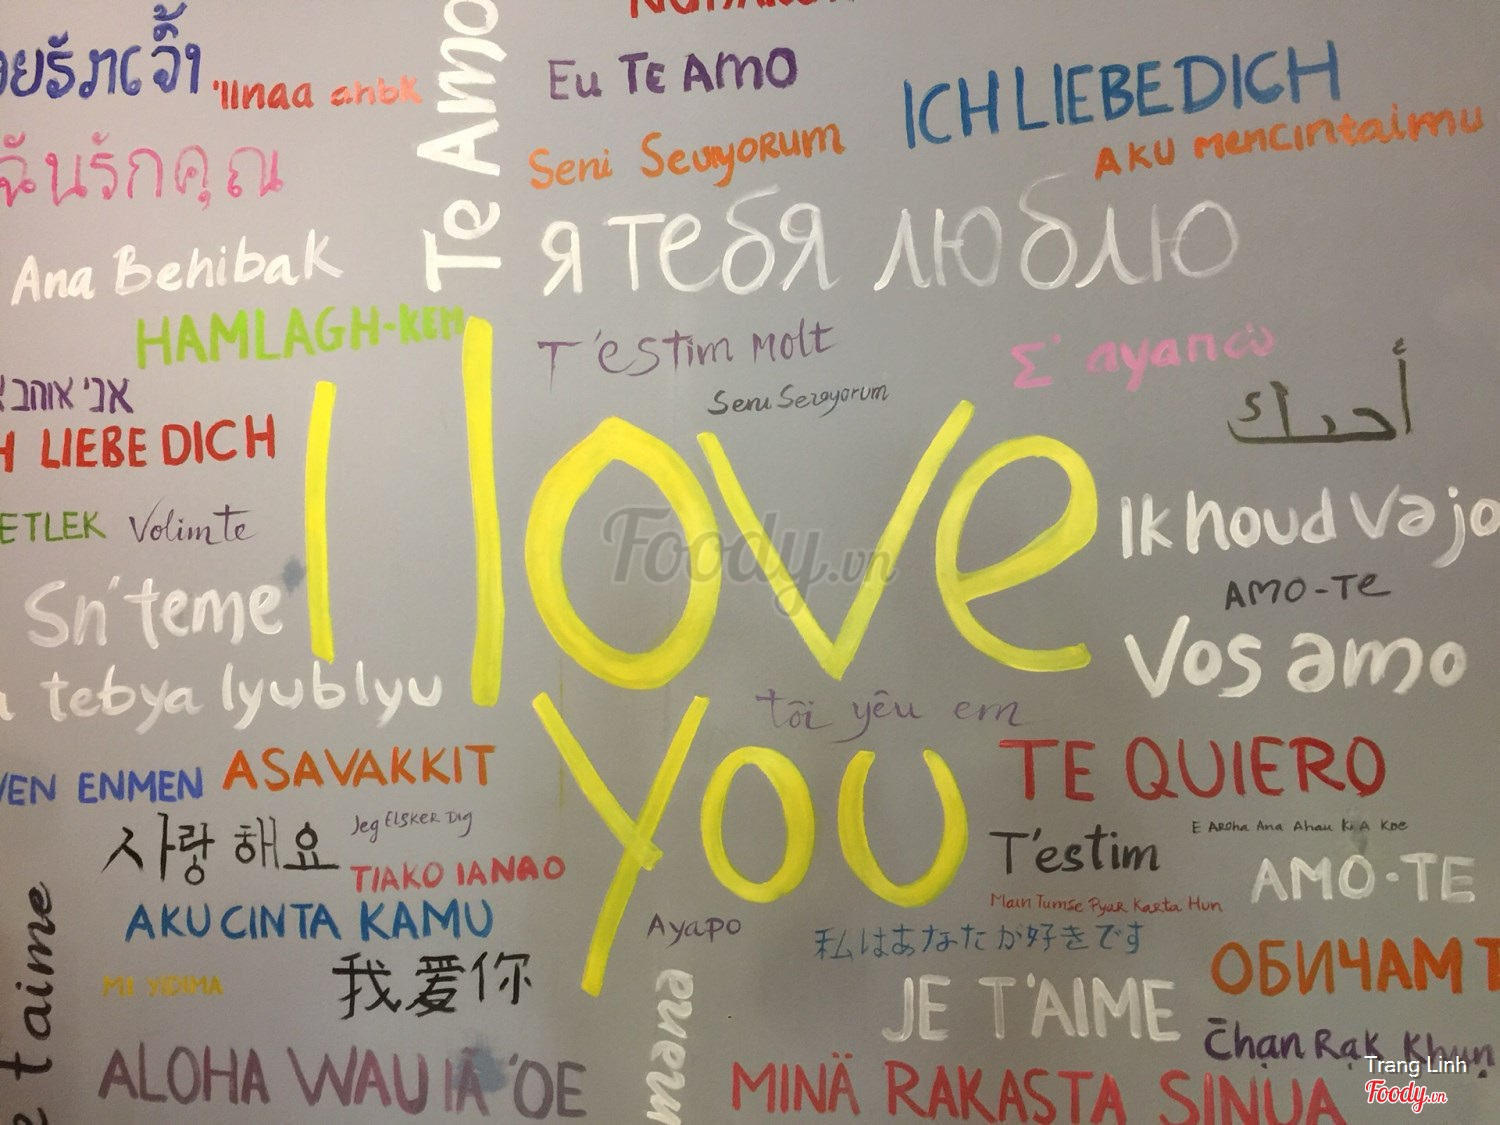 อยรักเจ้า
Te Amo
Eu TE AMO
ICH LIEBE DICH
Seni Seviyorum
AKU mencintaimu
ฉันรักคุณ
Я тебя люблю
Ana Behibak
HAMLAGH-KEM
T'estim Molt
Σ' αγαπώ
Seni Seviyorum
אני אוהב
H LIEBE DICH
I love
ETLEK
Volim te
Ik houd va jo
Sn'teme
AMO-TE
Vos amo
tebya lyublyu
you
tôi yêu em
VEN ENMEN
ASAVAKKIT
TE QUIERO
사랑해요
Jeg Elsker Dig
T'estim
E Aroha Ana Ahau Ki A Koe
TIAKO IANAO
AMO-TE
Main Tumse Pyar Karta Hun
AKU CINTA KAMU
Ayapo
私はあなたが好きです
ОБИЧАМ Т
我爱你
JE T'AIME
e taime
enem
Chạn Rạk Khun
ALOHA WAU IĀ 'OE
MINÄ RAKASTA SINUA
Foody.vn
Trang Linh
Foody.vn